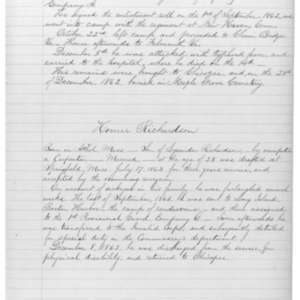 Company A.
He signed the enlistment with on the 1st of September 1862, and
went to camp with the regiment at New Haven, Conn.
October 22nd left camp and proceeded to
thence afterwards to Falmouth Va.
December 3rd he was attacked with typhoid fever and
carried to the hospital, where he died the 14th.
His remains were brought to Cheshire, and on the 28th
of December 1862 buried in Maple Grove Cemetery
Homer Richardson
Born in Mass. Son of Richardson, by occupation
a Carpenter Married at the age of 28 was drafted at
Springfield, Mass. July 17, 1863 for three years service and
accepted by the examining surgeon.
On account of sickness in his family, he was furloughed several
weeks. The last of September, 1863, he was sent to Long Island
Boston Harbor, to camp of rendezvous, and there assigned
to the 1st Provisional Guard Company C. Soon afterwards he
was transferred to the Invalid Corps, and subsequently detailed
for special duty in the Commissary's department.
December 8, 1863, he was discharged from the service for
physical disability, and returned to Cheshire.